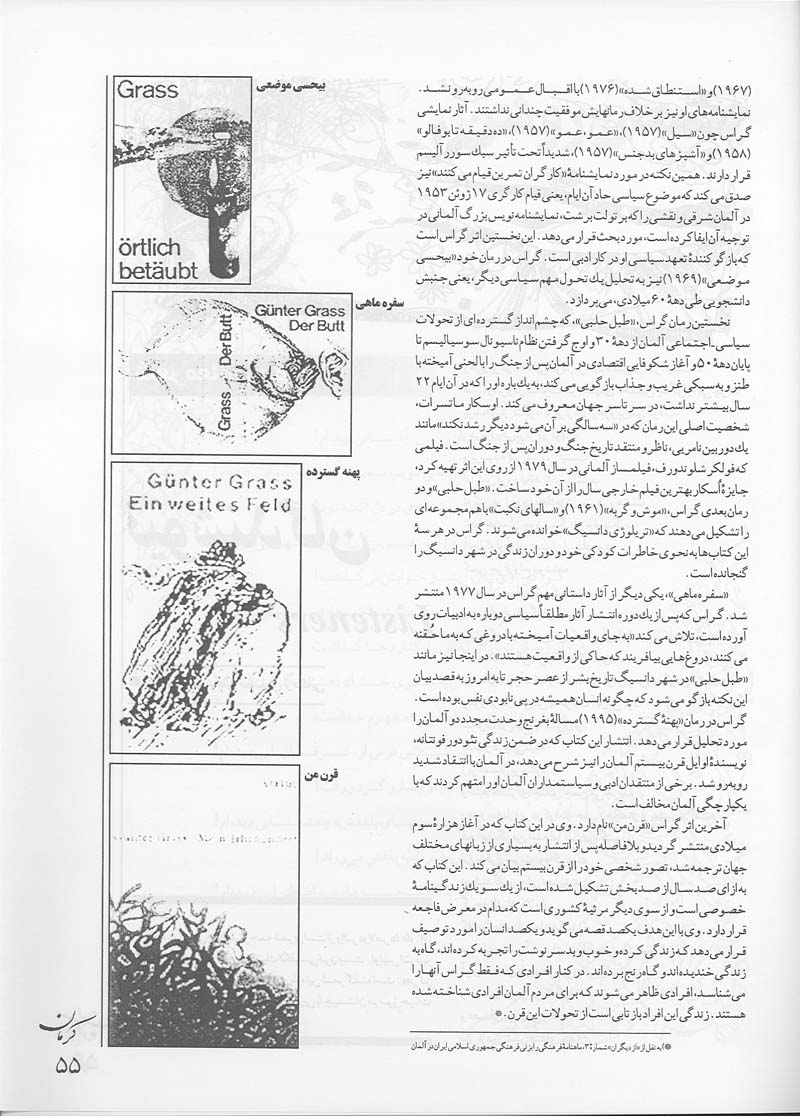 (۱۹۶۷) و «استنطاق شده» (۱۹۷۶) با اقبال عمومی روبه‌رو نشد.
نمایشنامه‌های او نیز برخلاف رمانهایش موفقیت چندانی نداشتند. آثار نمایشی
گراس چون «سیل» (۱۹۵۷)، «عمو، عمو» (۱۹۵۷)، «ده دقیقه تا بوفالو»
(۱۹۵۸) و «آشپزهای بدجنس» (۱۹۵۷)، شدیداً تحت تأثیر سبك سوررآلیسم
قرار دارند. همین نکته در مورد نمایشنامۀ «کارگران تمرین قیام می کنند» نیز
صدق می کند که موضوع سیاسی حاد آن ایام، یعنی قیام کارگری ۱۷ ژوئن ۱۹۵۳
در آلمان شرقی و نقشی را که برتولت برشت، نمایشنامه نویس بزرگ آلمانی در
توجیه آن ایفا کرده است، مورد بحث قرار می دهد. این نخستین اثر گراس است
که بازگو کنندۀ تعهد سیاسی او در کار ادبی است. گراس در رمان خود «بیحسی
موضعی» (۱۹۶۹) نیز به تحلیل یك تحول مهم سیاسی دیگر، یعنی جنبش
دانشجویی طی دهۀ ۶۰ میلادی، می پردازد.
نخستین رمان گراس، «طبل حلبی»، که چشم انداز گسترده ای از تحولات
سیاسی-اجتماعی آلمان از دهۀ ۳۰ و اوج گرفتن نظام ناسیونال سوسیالیسم تا
پایان دهۀ ۵۰ و آغاز شکوفایی اقتصادی در آلمان پس از جنگ را با لحنی آمیخته با
طنز و به سبکی غریب و جذاب بازگویی می کند، به یك باره او را که در آن ایام ۲۲
سال بیشتر نداشت، در سرتاسر جهان معروف می کند. اوسکار ماتسرات،
شخصیت اصلی این رمان که در «سه سالگی بر آن می شود دیگر رشد نکند» مانند
یك دوربین نامریی، ناظر و منتقد تاریخ جنگ و دوران پس از جنگ است. فیلمی
که فولکر شلوندورف، فیلمساز آلمانی در سال ۱۹۷۹ از روی این اثر تهیه کرد،
جایزۀ اُسکار بهترین فیلم خارجی سال را از آن خود ساخت. «طبل حلبی» و دو
رمان بعدی گراس، «موش و گربه» (۱۹۶۱) و «سالهای نکبت» با هم مجموعه ای
را تشکیل می دهند که «تریلوژی دانسیگ» خوانده می شوند. گراس در هر سۀ
این کتاب ها به نحوی خاطرات کودکی خود و دوران زندگی در شهر دانسیگ را
گنجانده است.
«سفره ماهی»، یکی دیگر از آثار داستانی مهم گراس در سال ۱۹۷۷ منتشر
شد. گراس که پس از یك دوره انتشار آثار مطلقاً سیاسی دوباره به ادبیات روی
آورده است، تلاش می کند «به جای واقعیات آمیخته با دروغی که به ما حُقنه
می کنند، دروغ هایی بیافریند که حاکی از واقعیت هستند». در اینجا نیز مانند
«طبل حلبی» در شهر دانسیگ تاریخ بشر از عصر حجر تا به امروز به قصد بیان
این نکته بازگو می شود که چگونه انسان همیشه در پی نابودی نفس بوده است.
گراس در رمان «پهنۀ گسترده» (۱۹۹۵) مسالۀ بغرنج وحدت مجدد دو آلمان را
مورد تحلیل قرار می دهد. انتشار این کتاب که در ضمن زندگی تئودور فونتانه،
نویسندۀ اوایل قرن بیستم آلمان را نیز شرح می دهد، در آلمان با انتقاد شدید
روبه رو شد. برخی از منتقدان ادبی و سیاستمداران آلمان او را متهم کردند که با
یکپارچگی آلمان مخالف است.
آخرین اثر گراس «قرن من» نام دارد. وی در این کتاب که در آغاز هزارۀ سوم
میلادی منتشر گردید و بلافاصله پس از انتشار به بسیاری از زبانهای مختلف
جهان ترجمه شد، تصور شخصی خود را از قرن بیستم بیان می کند. این کتاب که
به ازای صد سال از صد بخش تشکیل شده است، از یك سو یك زندگینامۀ
خصوصی است و از سوی دیگر مرثیۀ کشوری است که مدام در معرض فاجعه
قرار دارد. وی با این هدف یکصد قصه می گوید و یکصد انسان را مورد توصیف
قرار می دهد که زندگی کرده و خوب و بد سرنوشت را تجربه کرده اند، گاه به
زندگی خندیده اند و گاه رنج برده اند. در کنار افرادی که فقط گراس آنها را
می شناسد، افرادی ظاهر می شوند که برای مردم آلمان افرادی شناخته شده
هستند. زندگی این افراد بازتابی است از تحولات این قرن. *
*) به نقل از «از دیگران» شمارۀ ۳، ماهنامۀ فرهنگی رایزنی فرهنگی جمهوری اسلامی ایران در آلمان
بیحسی موضعی
Grass
örtlich
betäubt
سفره ماهی
Günter Grass
Der Butt
Grass Der Butt
پهنه گسترده
Günter Grass
Ein weites Feld
قرن من
Günter Grass Mein Jahrhundert
کرمان
۵۵